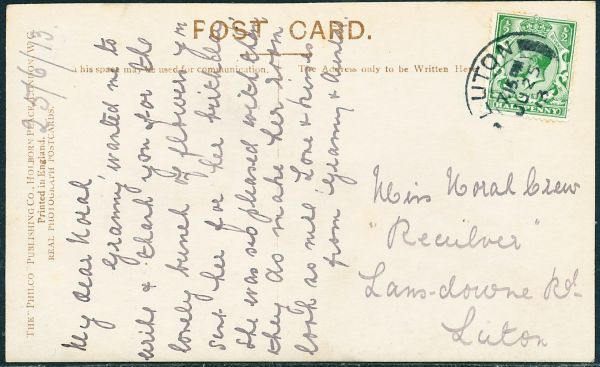 POST CARD.
This space may be used for communication.
The Address only to be Written Here
THE "PHILCO" PUBLISHING CO., HOLBORN PLACE, LONDON, W.C.
Printed in England.
REAL PHOTOGRAPH POSTCARDS.
25/6/13
My dear Norah,
Granny wanted me to
write & thank you for the
lovely bunch of flowers you
sent her for her birthday
She was so pleased with them
they as make her room
look so nice Love & kisses
from Granny & Auntie
LUTON
JU 25
13
HALFPENNY
Miss Norah Crew
"Reculver"
Lans-downe Rd.
Luton